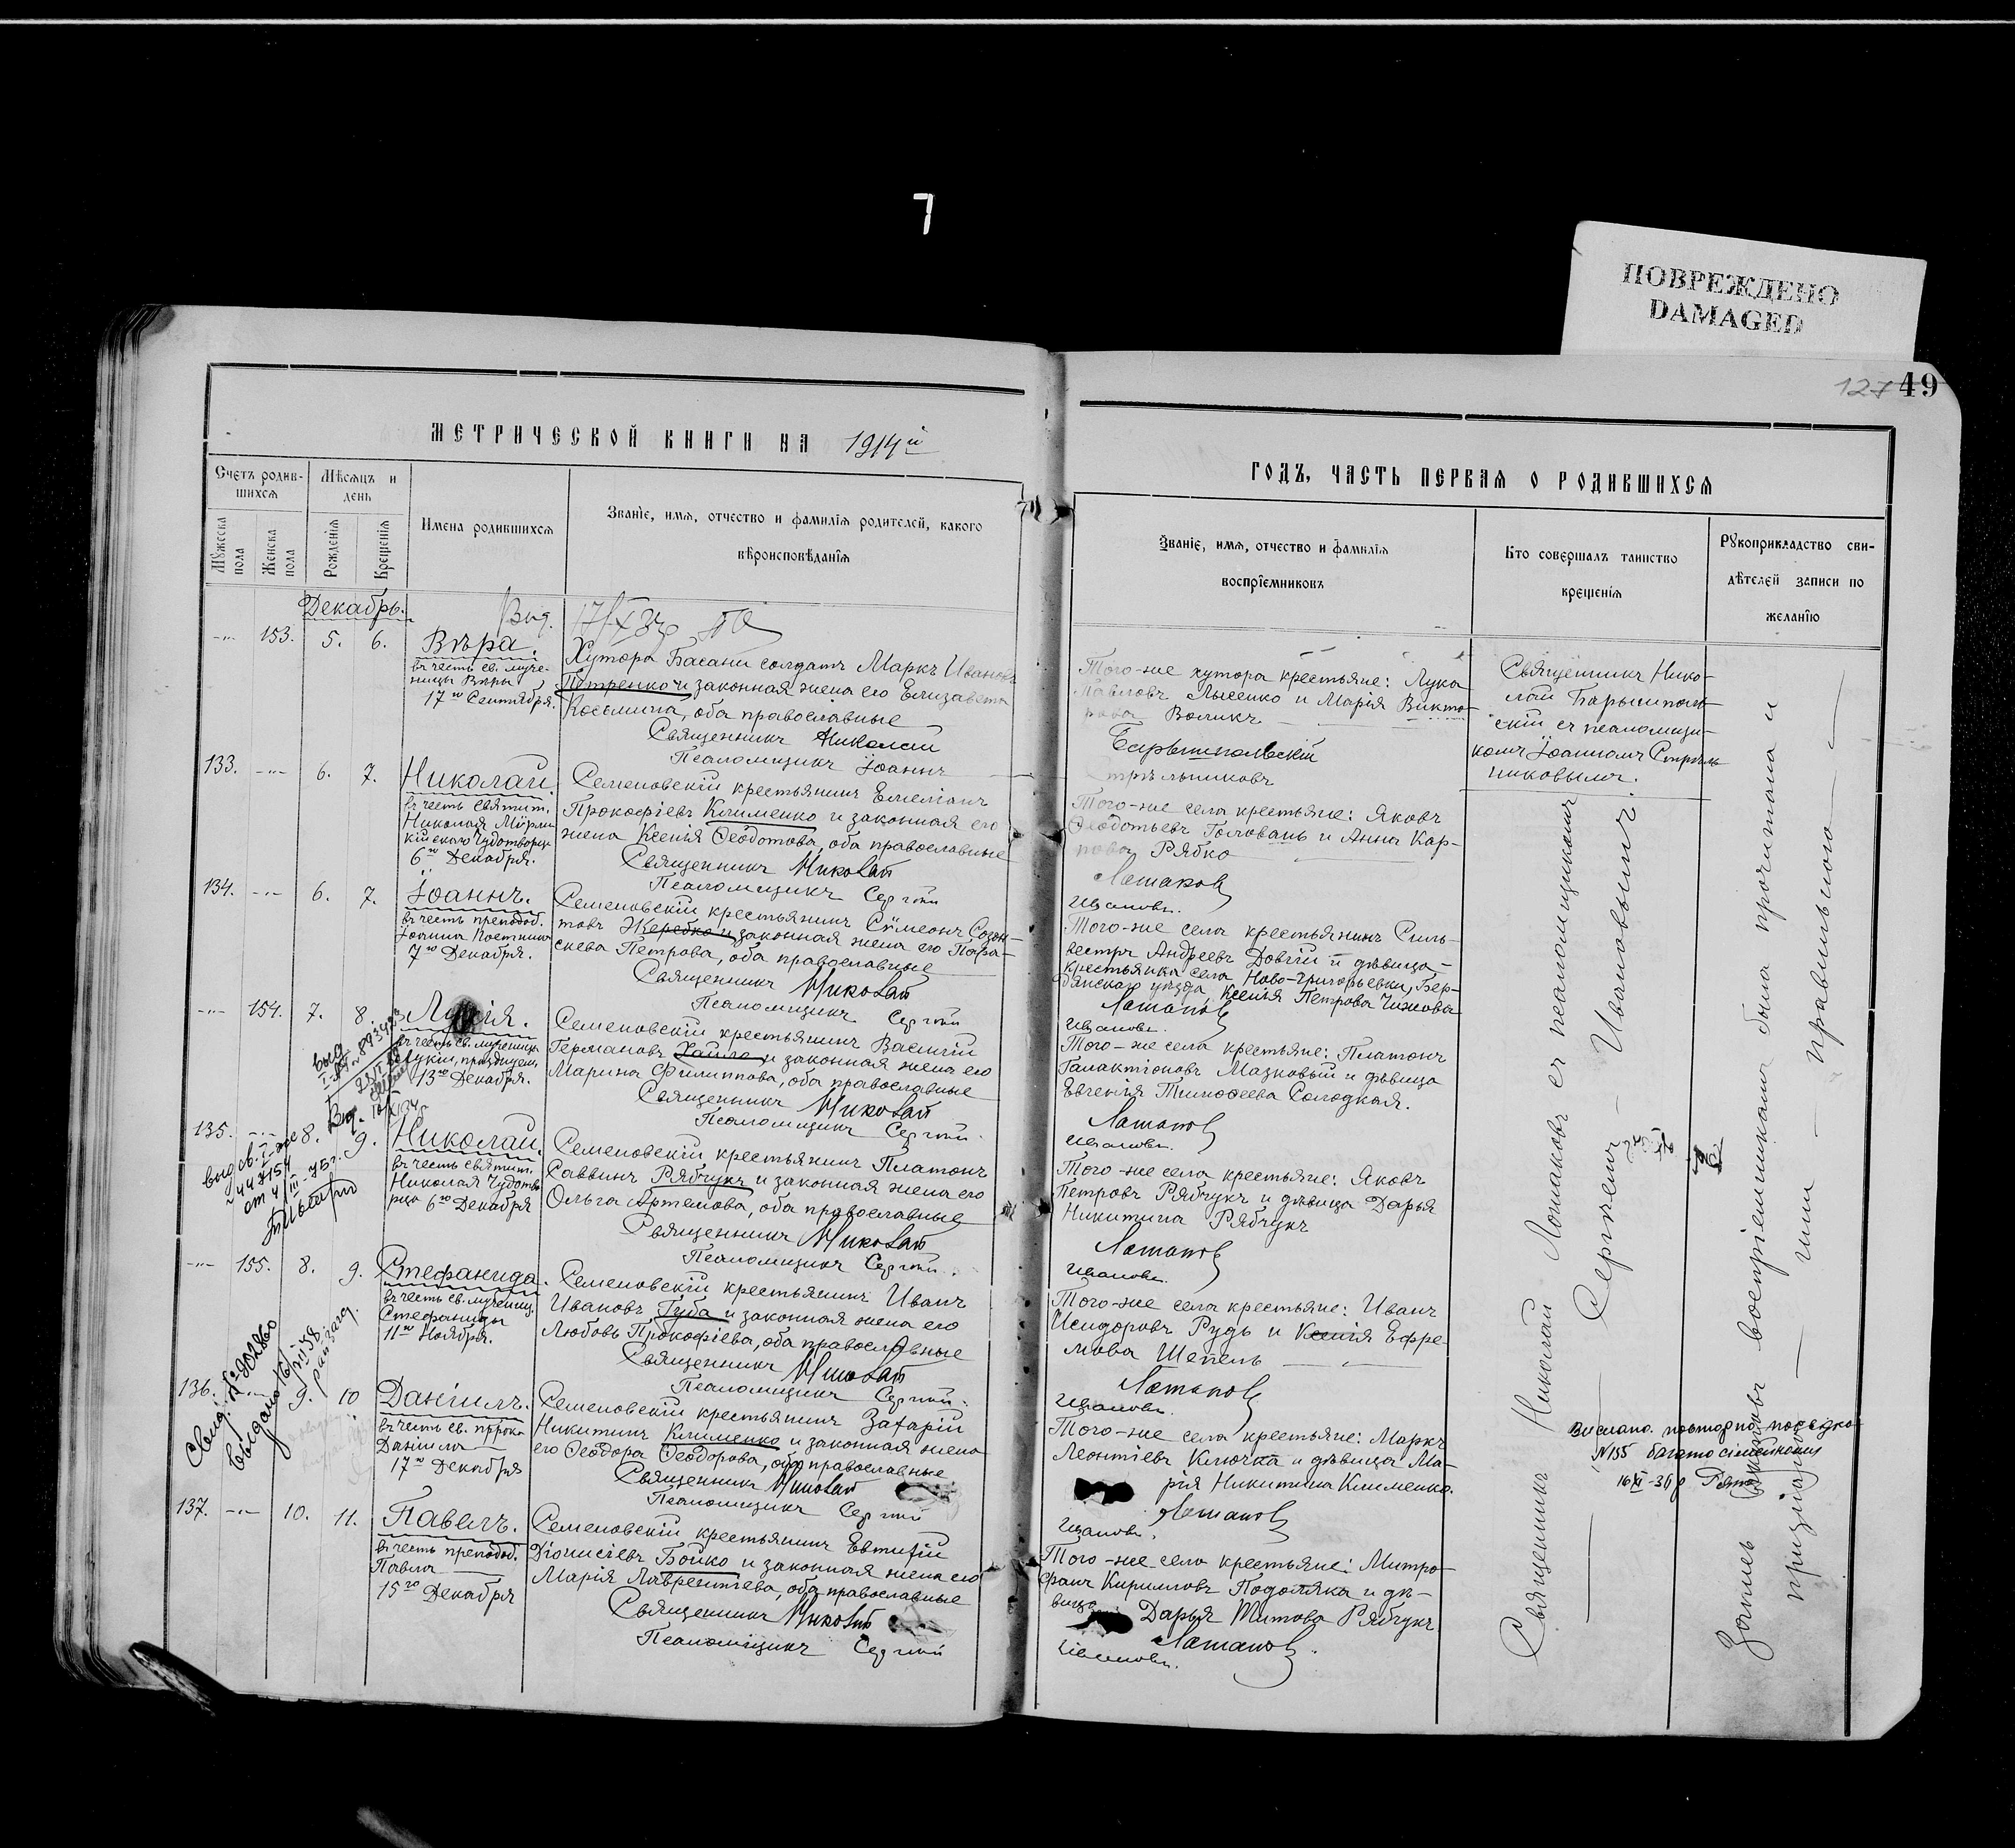 7
ПОВРЕЖДЕНО
DAMAGED
127 49
МЕТРИЧЕСКОЙ КНИГИ НА 1914й
Счетъ родив-
шихся
Мѣсяцъ и
день
Мужеска
пола
Женска
пола
Рожденія
Крещенія
Имена родившихся
Званіе, имя, отчество и фамилія родителей, какого
вѣроисповѣданія
Декабрь.
153. 5. 6. Вѣра.
въ честь св. муче-
ницы Вѣры
17го Сентября.
Хутора Басани солдатъ Маркъ Ивановъ
Петренко и законная жена его Елизавета
Косьмина, оба православные
Священникъ Николай
Псаломщикъ Іоаннъ
133. 6. 7. Николай.
въ честь святит.
Николая Мѵрли-
кійскаго Чудотворца
6го Декабря.
Семеновскій крестьянинъ Емеліанъ
Прокофіевъ Клименко и законная его
жена Ксенія Ѳеодотова, оба православные
Священникъ Николай
Псаломщикъ Сергій
134. 6. 7. Іоаннъ.
въ честь преподоб.
Іоанна Постника
7го Декабря.
Семеновскій крестьянинъ Сѵмеонъ Созон-
товъ Жеребко и законная жена его Пара-
скева Петрова, оба православные
Священникъ Николай
Псаломщикъ Сергій
154. 7. 8. Лукія.
въ честь св. мученицы
Лукіи,
13го Декабря.
Семеновскій крестьянинъ Василій
Германовъ Хайло и законная жена его
Марина Филиппова, оба православные
Священникъ Николай
Псаломщикъ Сергій.
135. 8. 9. Николай.
въ честь святит.
Николая Чудотво-
рца 6го Декабря
Семеновскій крестьянинъ Платонъ
Саввинъ Рябчукъ и законная жена его
Ольга Артемова, оба православные
Священникъ Николай
Псаломщикъ Сергій.
155. 8. 9. Стефанида.
въ честь св. мучениц.
Стефаниды
11го Ноября.
Семеновскій крестьянинъ Иванъ
Ивановъ Губа и законная жена его
Любовь Прокофіева, оба православные
Священникъ Николай
Псаломщикъ Сергій.
136. 9. 10 Даніилъ.
въ честь св. пророка
Даніила
17го Декабря
Семеновскій крестьянинъ Захарій
Никитинъ Клименко и законная жена
его Ѳеодора Ѳеодорова, оба православные
Священникъ Николай
Псаломщикъ Сергій
137. 10. 11. Павелъ.
въ честь преподоб.
Павла
15го Декабря
Семеновскій крестьянинъ Евтихій
Діонисіевъ Бойко и законная жена его
Марія Лаврентіева, оба православные
Священникъ Николай
Псаломщикъ Сергій
ГОДЪ, ЧАСТЬ ПЕРВАЯ О РОДИВШИХСЯ
Званіе, имя, отчество и фамилія
воспріемниковъ
Кто совершалъ таинство
крещенія
Рукоприкладство сви-
дѣтелей записи по
желанію
Того-же хутора крестьяне: Лука
Павловъ Лысенко и Марія Викто-
рова Воликъ
Барышпольскій
Стрѣльниковъ
Священникъ Нико-
лай Барышполь-
скій съ псаломщи-
комъ Іоанномъ Стрѣль-
никовымъ.
Того-же села крестьяне: Яковъ
Ѳеодотьевъ Головань и Анна Кар-
пова Рябко
Лошаковъ
Ивановъ.
Того-же села крестьянинъ Силь-
вестръ Андреевъ Довгій и дѣвица-
крестьянка села Ново-Григорьевки, Бер-
дянскаго уѣзда, Ксенія Петрова Чижова
Лошаковъ
Ивановъ.
Того-же села крестьяне: Платонъ
Галактіоновъ Мазковый и дѣвица
Евгенія Тимофеева Солодкая.
Лошаковъ
Ивановъ.
Того-же села крестьяне: Яковъ
Петровъ Рябчукъ и дѣвица Дарья
Никитина Рябчукъ
Лошаковъ
Ивановъ.
Того-же села крестьяне: Иванъ
Исидоровъ Рудь и Ксенія Ефре-
мова Шепель
Лошаковъ
Ивановъ.
Того-же села крестьяне: Маркъ
Леонтіевъ Ключка и дѣвица Ма-
рія Никитина Клименко.
Лошаковъ
Ивановъ.
Того-же села крестьяне: Митро-
фанъ Кирилловъ Подоляка и дѣ-
вица Дарья Титова Рябчукъ
Лошаковъ.
Ивановъ.
Священникъ Николай Лошаковъ съ псаломщикомъ
Сергіемъ Ивановымъ.
Запись воспріемниками была прочитана и
признана ими правильною